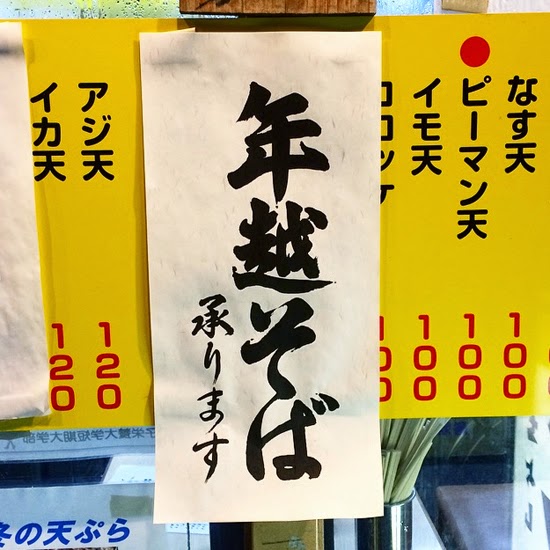 なす天
100
ピーマン天
100
イモ天
100
コロッケ
100
年越そば
承ります
アジ天
120
イカ天
120
冬の天ぷら